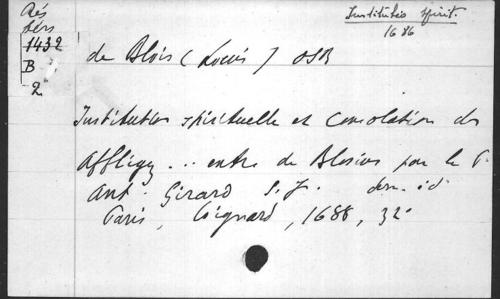 Rés
sérs
1432
B
2
Institutio spirit.
1686
de Blois (Louis) OSB
Institution spirituelle et Consolation des
Affligez ... entre de Blosius par le P.
Ant. Girard S.J. dern. id
Paris, Coignard, 1688, 32°